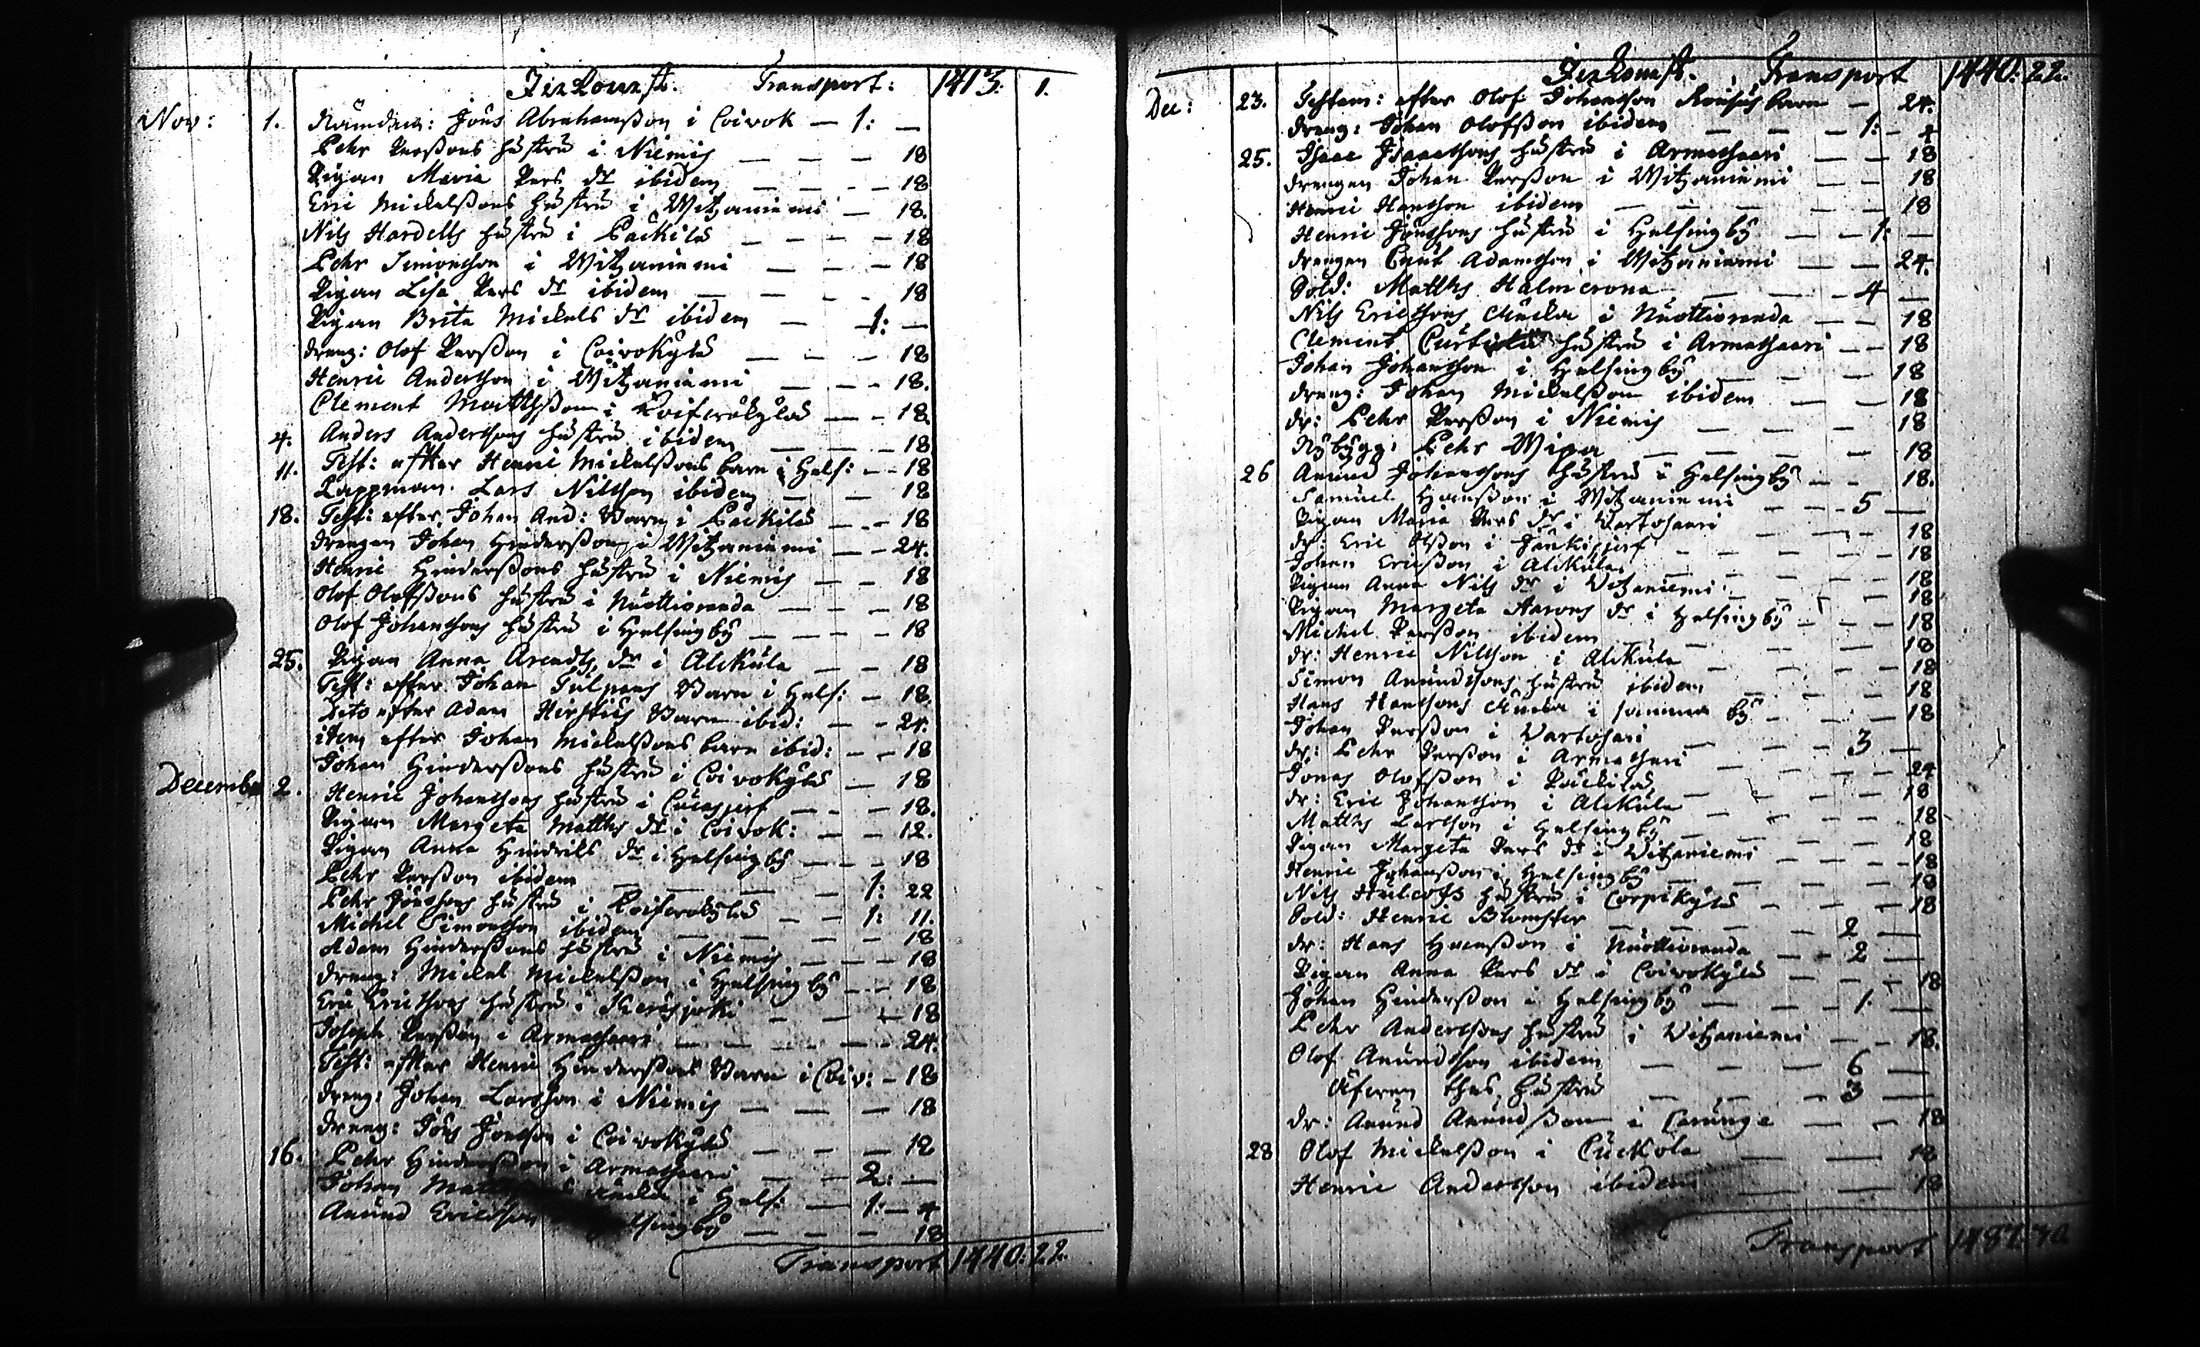 Inkomst. Transport: 1413. 1.
Nov: 1. Nämdem: Jöns Abrahamsson i Coivok — 1: —
Pehr Perssons hustru i Niemis — — — 18
Pigan Maria Pers dr ibidem — — - — 18
Eric Mickelssons hustru i Witzaniemi — 18.
Nils Hardells hustru i Päckilä — — — — 18
Pehr Simonsson i Witzaniemi — — — 18
Pigan Lisa Pers dr ibidem — — - - 18
Pigan Brita Mickels dr ibidem — 1: —
dreng: Olof Persson i Coivokylä — — — 18
Henric Andersson i Witzaniemi — — - 18.
Clement Matthsson i Koiferäkylä — - 18.
4. Anders Anderssons hustru ibidem — — — 18
11. Test: efter Henric Mickelssons barn i Hels: - - 18
Lappman Lars Nilsson ibidem — — 18
18. Test: efter Johan And: Barn i Päckilä — - - 18
drengen Johan Hindersson i Witzaniemi — — 24.
Henric Hinderssons hustru i Niemis — — 18
Olof Olofssons hustru i Nuottioranda — — - 18
Olof Johanssons hustru i Helsingby — — — - 18
25. Pigan Anna Arendts dr i Alikula — — 18
Test: efter Johan Tulpans Barn i Hels: — 18.
Dito efter Adam Barn ibid: — - 24.
idem efter Johan Mickelssons barn ibid: — - 18
Johan Hinderssons hustru i Coivokylä — 18
December 2. Henric Johanssons hustru i — - - 18.
Pigan Margeta Matths dr i Coivok: — — 12.
Pigan Anna Hindrics dr i Helsingby — — - 18
Pehr Persson ibidem — — — 1: 22
Pehr Jönssons hustru i Koiferäkylä — — 1: 11.
Michel Simonsson ibidem — — — — 18
Adam Hinderssons hustru i Niemis — — — 18
dreng: Mickel Mickelsson i Helsingby — - - 18
Eric Ericssons hustru i — — — 18
Joseph Persson i Armasaari — — — 24.
Test: efter Henric Hinderssons Barn i Coiv: - 18
dreng: Johan Larsson i Niemis — — — 18
dreng: Jöns Jönsson i Coivokylä — — — 12
16. Pehr Hindersson i Armasaari — — 2: —
Johan i Hels: — 1: — 4
Anund Ericsson Helsingby — — — — 18
Transport 1440: 22.
Inkomst. Transport 1440: 22.
Dec: 23. Testam: efter Olof Johansson barn — 24.
dreng: Johan Olofsson ibidem — — — 1: - 4
25. Isaac Isaacssons hustru i Armasaari — — 18
drengen Johan Persson i Witzaniemi — — 18
Henric Hansson ibidem — — — — 18
Henric Jönssons hustru i Helsingby — — 1: —
drengen Adamsson i Witzaniemi — — 24.
Sold: Matths Halmcrona — — — 4 —
Nils Ericssons änckia i Nuottioranda — — 18
Clement hustru i Armasaari — — 18
Johan Johansson i Helsingby — — — 18
dreng: Johan Mickelsson ibidem — — — 18
dr: Pehr Persson i Niemis — — — 18
Nybygg: Pehr Wipa — — — — 18
26 Anund Johanssons hustru i Helsingby — — 18.
Samuel Hansson i Witzaniemi — - - 5 —
Pigan Maria Pers dr i Vartosaari — — 18
dr: Eric Olsson i — - - — 18
Johan Ericsson i Alikula — — — — 18
Pigan Anna Nils dr i Witzaniemi — — - 18
Pigan Margeta Aarons dr i Helsingby — - - 18
Michel Persson ibidem — — — — 18
dr: Henric Nilsson i Alikula — — — 18
Simon Anundssons hustru ibidem — — - 18
Hans Hanssons änckia i samma by — — — 18
Johan Persson i Vartosari — — - 3 —
dr: Pehr Persson i Armasari — — — 24
Jonas Olofsson i Päckilä — — — 18
dr: Eric Johansson i Alikula — — — 18
Matths Larsson i Helsingby — — — 18
Pigan Margeta Pers dr i Witzaniemi — — - 18
Henric Johansson i Helsingby — — — 18
Nils hustru i Corpikylä — — - 18
Sold: Henric Blomster — — — - 2 —
dr: Hans Hansson i Nuottioranda — - 2 —
Pigan Anna Pers dr i Coivokylä — — — 18
Johan Hindersson i Helsingby — — - 1. —
Pehr Anderssons hustru i Witzaniemi — — 18.
Olof Anundsson ibidem — — — 6 —
Äfwen thes hustru — — — - 3 —
dr: Anund Anundsson i Carunge — - - 18
28 Olof Mickelsson i Cuckola — — 18
Henric Andersson ibidem — — — 18
Transport 1487: 40